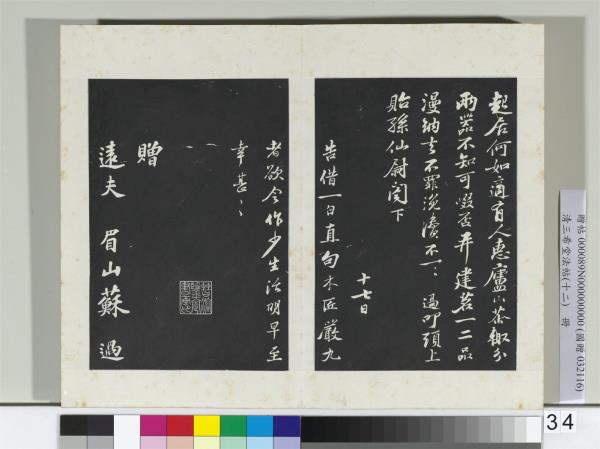 起居何如適有人惠廬山茶輒分
兩器不知可啜否并建茗一二品
漫納去不罪浼瀆不一〻過叩頭上
貽孫仙尉閣下
十七日
告借一白直句木匠嚴九
者欲令作少生活明早至
幸甚〻
贈
遠夫 眉山蘇過
贈帖 000089N000000000 (國贈 032116)
清三希堂法帖(十二) 冊
34